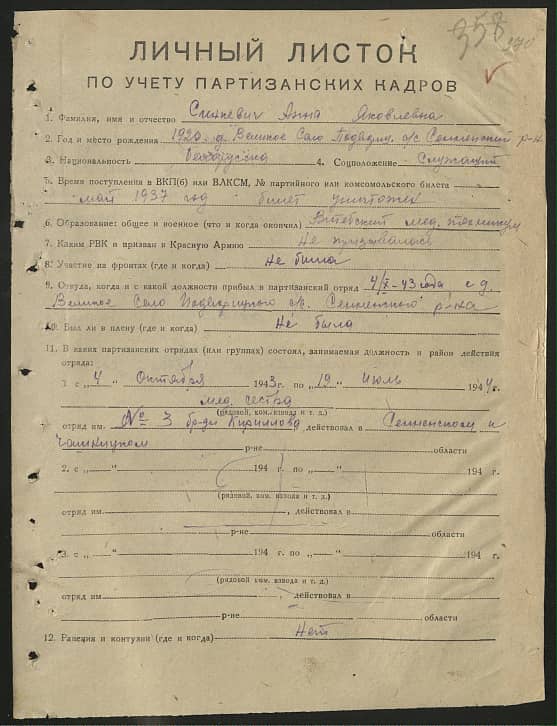 358
270
ЛИЧНЫЙ ЛИСТОК
ПО УЧЕТУ ПАРТИЗАНСКИХ КАДРОВ
1. Фамилия, имя и отчество Анна Яковлевна
2. Год и место рождения 1920 д. Великое Село с/с Сенненский р-н
3. Национальность белорусска 4. Соцположение Служащий
5. Время поступления в ВКП(б) или ВЛКСМ, № партийного или комсомольского билета
май 1937 год билет уничтожен
6. Образование: общее и военное (что и когда окончил) Витебский мед. техникум
7. Каким РВК и призван в Красную Армию Не призывалась
8. Участие на фронтах (где и когда) Не была
9. Откуда, когда и с какой должности прибыл в партизанский отряд 4/X-43 года с д.
Великое Село с/с. Сенненского р-на
10. Был ли в плену (где и когда) Не была
11. В каких партизанских отрядах (или группах) состоял, занимаемая должность и район действия
отряда:
1. с „4“ Октября 1943 г. по „19“ Июль 1944 г.
мед. сестра
(рядовой, ком. взвода и т. д.)
отряд им. № 3 бр-ды Кириллова действовал в Сенненском и
Чашницком р-не области
2. с „ “ 194 г. по „ “ 194 г.
(рядовой, ком. взвода и т. д.)
отряд им. , действовал в
р-не области
3. с „ “ 194 г. по „ “ 194 г.
(рядовой ком. взвода и т. д.)
отряд им. , действовал в
р-не области
12. Ранения и контузии (где и когда) Нет